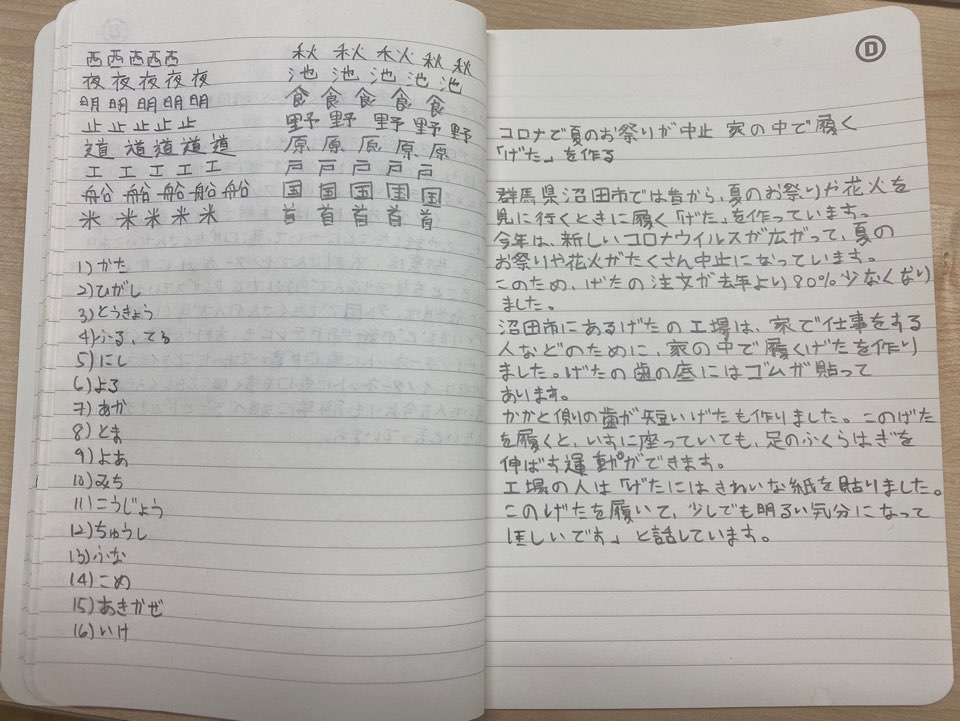 西西西西西 秋秋秋秋秋
夜夜夜夜夜 池池池池池
明明明明明 食食食食食
止止止止止 野野野野野
道道道道道 原原原原原
工工工工工 戸戸戸戸戸
船船船船船 国国国国国
米米米米米 首首首首首
1)かた
2)ひがし
3)とうきょう
4)ふる、てら
5)にし
6)よる
7)あか
8)とま
9)よあ
10)みち
11)こうじょう
12)ちゅうし
13)ふな
14)こめ
15)あきかぜ
16)いけ
D
コロナで夏のお祭りが中止 家の中で履く
「げた」を作る
群馬県沼田市では昔から、夏のお祭りや花火を
見に行くときに履く「げた」を作っています。
今年は、新しいコロナウイルスが広がって、夏の
お祭りや花火がたくさん中止になっています。
このため、げたの注文が去年より80%少なくなり
ました。
沼田市にあるげたの工場は、家で仕事をする
人などのために、家の中で履くげたを作り
ました。げたの歯の底にはゴムが貼って
あります。
かかと側の歯が短いげたも作りました。このげた
を履くと、いすに座っていても、足のふくらはぎを
伸ばす運動ができます。
工場の人は「げたにはきれいな紙を貼りました。
このげたを履いて、少しでも明るい気分になって
ほしいです」と話しています。